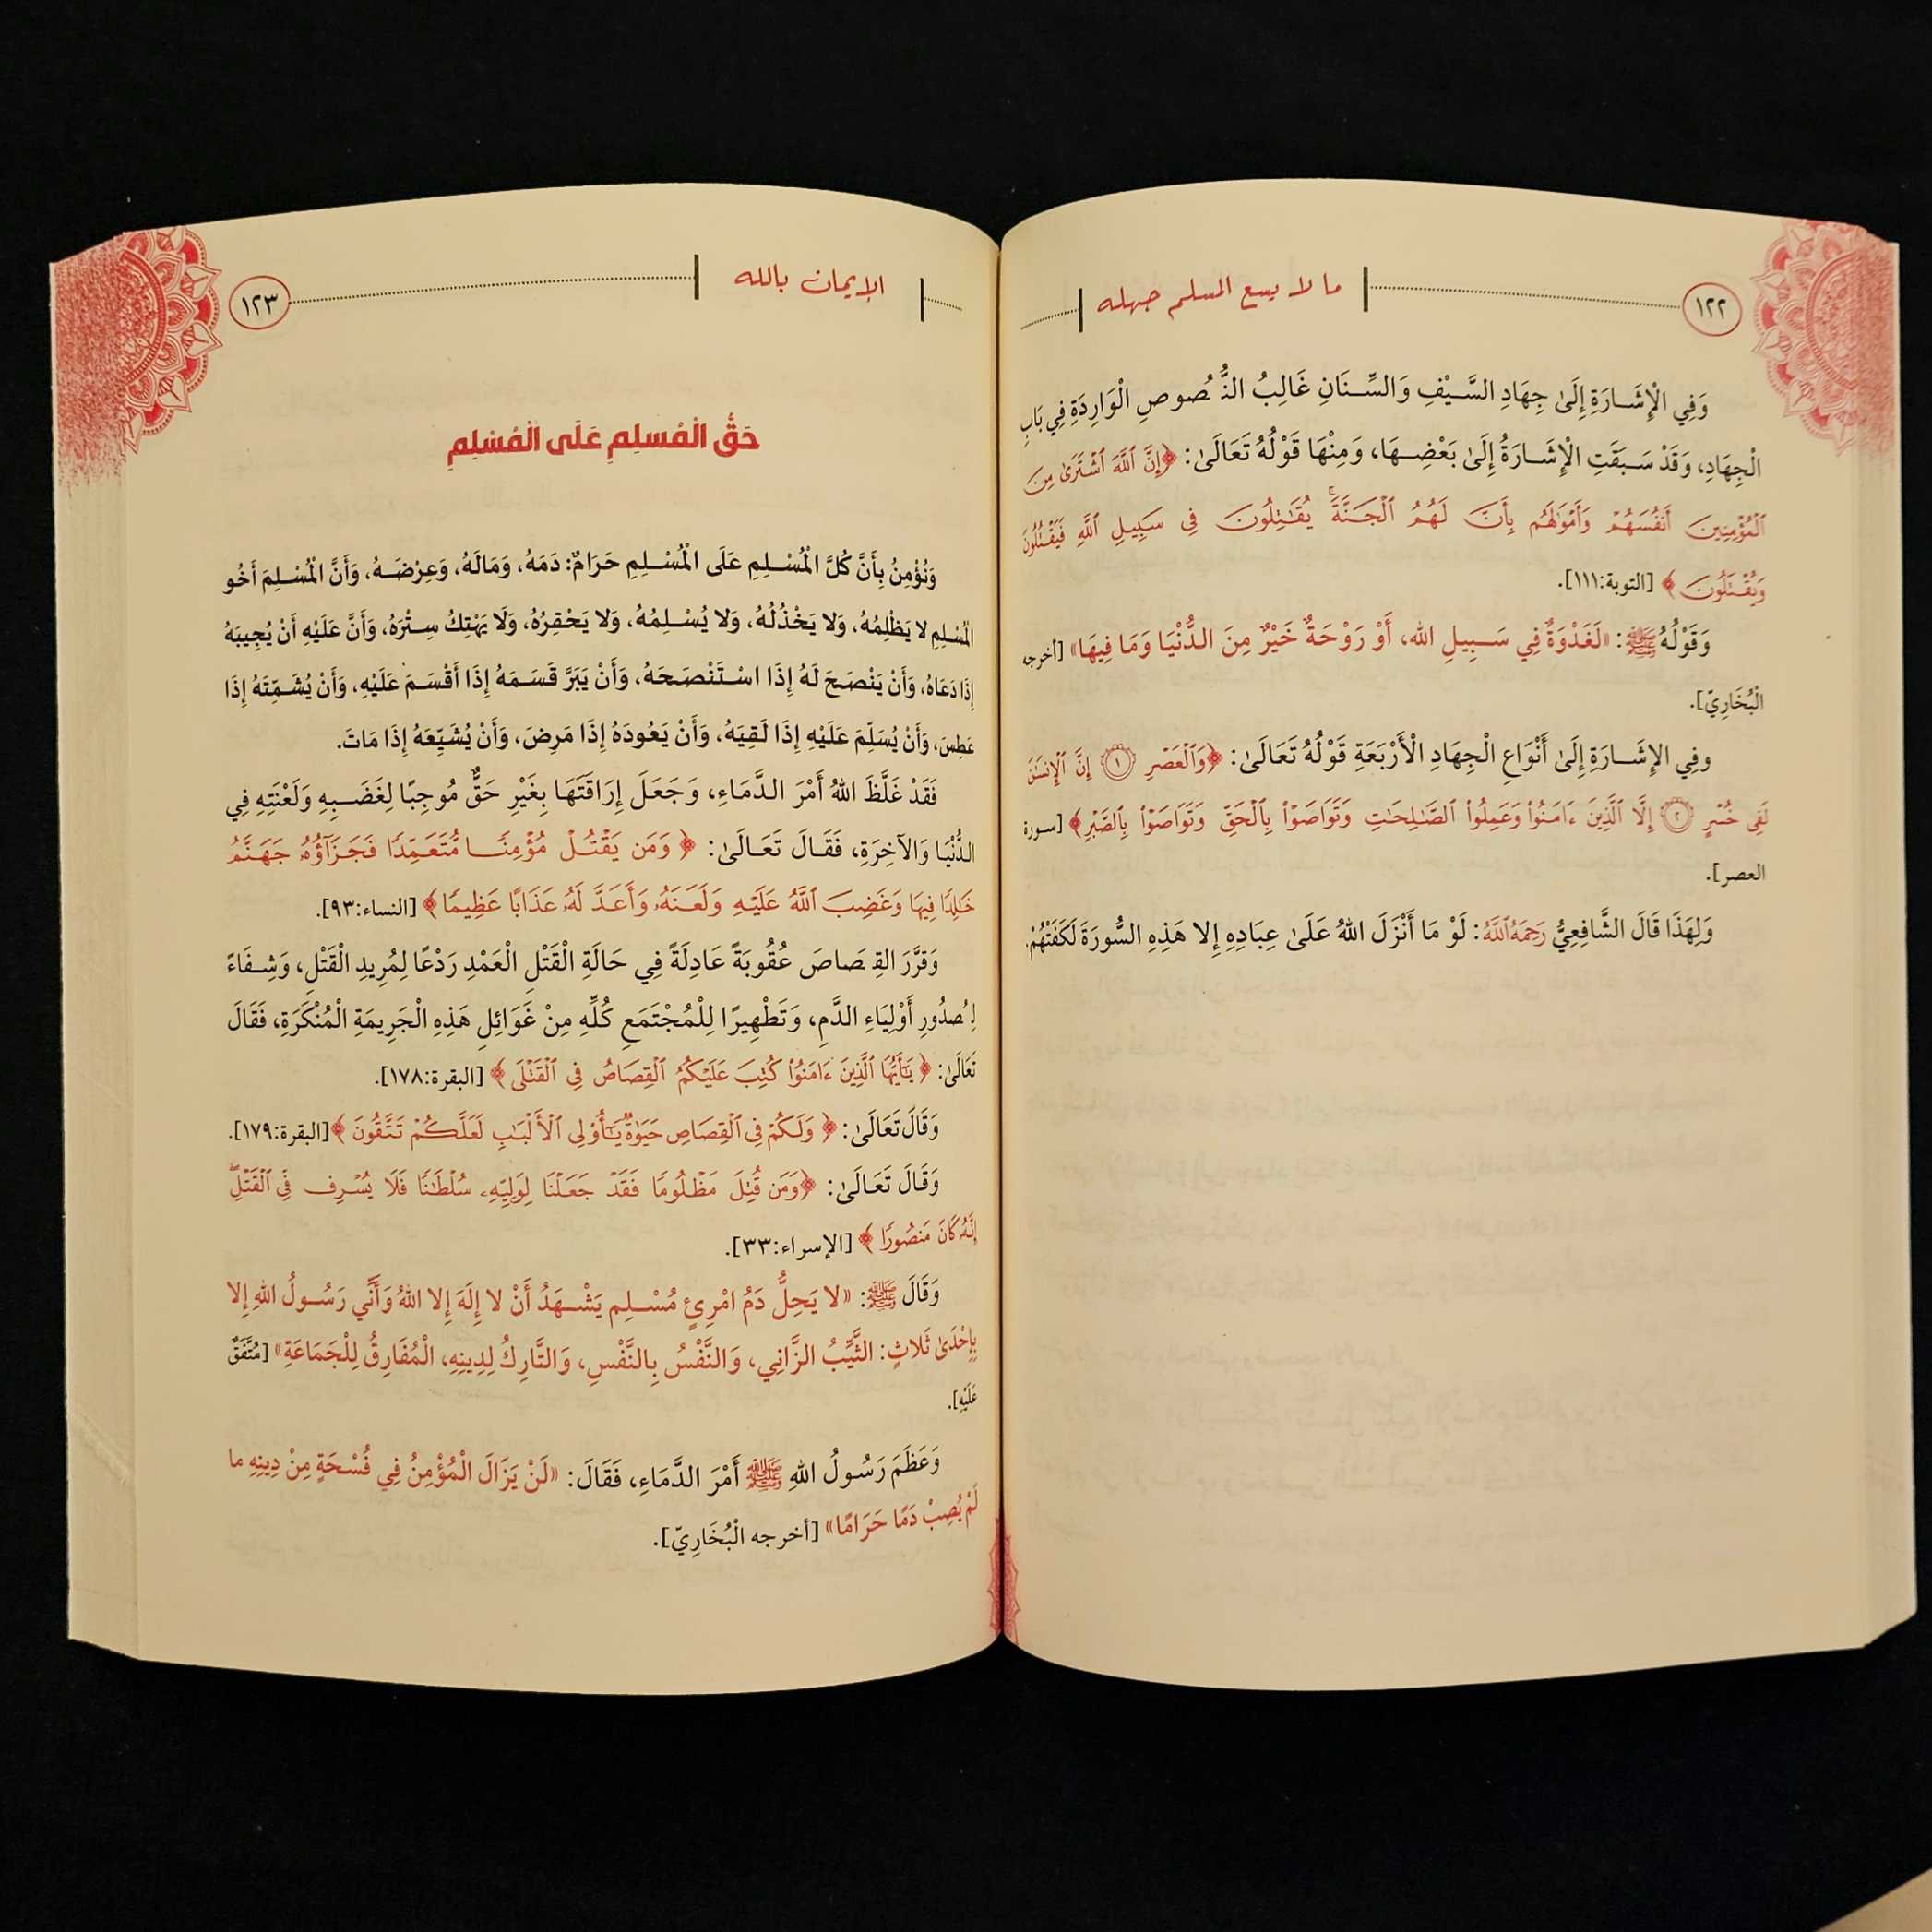 ١٢٢
ما لا يسع المسلم جهله
وَفِي الْإِشَارَةِ إِلَىٰ جِهَادِ السَّيْفِ وَالسِّنَانِ غَالِبُ النُّصُوصِ الْوَارِدَةِ فِي بَابِ
الْجِهَادِ، وَقَدْ سَبَقَتِ الْإِشَارَةُ إِلَىٰ بَعْضِهَا، وَمِنْهَا قَوْلُهُ تَعَالَىٰ: ﴿إِنَّ ٱللَّهَ ٱشْتَرَىٰ مِنَ
ٱلْمُؤْمِنِينَ أَنفُسَهُمْ وَأَمْوَٰلَهُم بِأَنَّ لَهُمُ ٱلْجَنَّةَ ۚ يُقَٰتِلُونَ فِى سَبِيلِ ٱللَّهِ فَيَقْتُلُونَ
وَيُقْتَلُونَ﴾ [التوبة:١١١].
وَقَوْلُهُ ﷺ: «لَغَدْوَةٌ فِي سَبِيلِ اللهِ، أَوْ رَوْحَةٌ خَيْرٌ مِنَ الدُّنْيَا وَمَا فِيهَا» [أخرجه
الْبُخَارِيّ].
وفِي الإِشَارَةِ إِلَىٰ أَنْوَاعِ الْجِهَادِ الْأَرْبَعَةِ قَوْلُهُ تَعَالَىٰ: ﴿وَٱلْعَصْرِ ١ إِنَّ ٱلْإِنسَٰنَ
لَفِى خُسْرٍ ٢ إِلَّا ٱلَّذِينَ ءَامَنُوا۟ وَعَمِلُوا۟ ٱلصَّٰلِحَٰتِ وَتَوَاصَوْا۟ بِٱلْحَقِّ وَتَوَاصَوْا۟ بِٱلصَّبْرِ﴾ [سورة
العصر].
وَلِهَذَا قَالَ الشَّافِعِيُّ رَحِمَهُ ٱللَّهُ: لَوْ مَا أَنْزَلَ اللهُ عَلَىٰ عِبَادِهِ إِلا هَذِهِ السُّورَةَ لَكَفَتْهُمْ.
الإيمان بالله
١٢٣
حَقُّ الْمُسلِمِ عَلَى الْمُسْلِمِ
وَنُؤْمِنُ بِأَنَّ كُلَّ الْمُسْلِمِ عَلَى الْمُسْلِمِ حَرَامٌ: دَمَهُ، وَمَالَهُ، وَعِرْضَهُ، وَأَنَّ الْمُسْلِمَ أَخُو
الْمُسْلِمِ لا يَظْلِمُهُ، وَلا يَخْذُلُهُ، وَلا يُسْلِمُهُ، وَلا يَحْقِرُهُ، وَلَا يَهْتِكُ سِتْرَهُ، وَأَنَّ عَلَيْهِ أَنْ يُجِيبَهُ
إِذَا دَعَاهُ، وَأَنْ يَنْصَحَ لَهُ إِذَا اسْتَنْصَحَهُ، وَأَنْ يَبَرَّ قَسَمَهُ إِذَا أَقْسَمَ عَلَيْهِ، وَأَنْ يُشَمِّتَهُ إِذَا
عَطِسَ، وَأَنْ يُسَلِّمَ عَلَيْهِ إِذَا لَقِيَهُ، وَأَنْ يَعُودَهُ إِذَا مَرِضَ، وَأَنْ يُشَيِّعَهُ إِذَا مَاتَ.
فَقَدْ غَلَّظَ اللهُ أَمْرَ الدَّمَاءِ، وَجَعَلَ إِرَاقَتَهَا بِغَيْرِ حَقٍّ مُوجِبًا لِغَضَبِهِ وَلَعْنَتِهِ فِي
الدُّنْيَا وَالآخِرَةِ، فَقَالَ تَعَالَىٰ: ﴿وَمَن يَقْتُلْ مُؤْمِنًا مُّتَعَمِّدًا فَجَزَآؤُهُۥ جَهَنَّمُ
خَٰلِدًا فِيهَا وَغَضِبَ ٱللَّهُ عَلَيْهِ وَلَعَنَهُۥ وَأَعَدَّ لَهُۥ عَذَابًا عَظِيمًا﴾ [النساء:٩٣].
وَقَرَّرَ القِصَاصَ عُقُوبَةً عَادِلَةً فِي حَالَةِ الْقَتْلِ الْعَمْدِ رَدْعًا لِمُرِيدِ الْقَتْلِ، وَشِفَاءً
لِصُدُورِ أَوْلِيَاءِ الدَّمِ، وَتَطْهِيرًا لِلْمُجْتَمَعِ كُلِّهِ مِنْ غَوَائِلِ هَذِهِ الْجَرِيمَةِ الْمُنْكَرَةِ، فَقَالَ
تَعَالَىٰ: ﴿يَٰٓأَيُّهَا ٱلَّذِينَ ءَامَنُوا۟ كُتِبَ عَلَيْكُمُ ٱلْقِصَاصُ فِى ٱلْقَتْلَى﴾ [البقرة:١٧٨].
وَقَالَ تَعَالَىٰ: ﴿وَلَكُمْ فِى ٱلْقِصَاصِ حَيَوٰةٌ يَٰٓأُو۟لِى ٱلْأَلْبَٰبِ لَعَلَّكُمْ تَتَّقُونَ﴾ [البقرة:١٧٩].
وَقَالَ تَعَالَىٰ: ﴿وَمَن قُتِلَ مَظْلُومًا فَقَدْ جَعَلْنَا لِوَلِيِّهِۦ سُلْطَٰنًا فَلَا يُسْرِف فِّى ٱلْقَتْلِ ۖ
إِنَّهُۥ كَانَ مَنصُورًا﴾ [الإسراء:٣٣].
وَقَالَ ﷺ: «لا يَحِلُّ دَمُ امْرِئٍ مُسْلِمٍ يَشْهَدُ أَنْ لا إِلَهَ إِلا اللهُ وَأَنِّي رَسُولُ اللهِ إِلا
بِإِحْدَىٰ ثَلاثٍ: الثَّيِّبُ الزَّانِي، وَالنَّفْسُ بِالنَّفْسِ، وَالتَّارِكُ لِدِينِهِ، الْمُفَارِقُ لِلْجَمَاعَةِ» [مُتَّفَقٌ
عَلَيْهِ].
وَعَظَمَ رَسُولُ اللهِ ﷺ أَمْرَ الدَّمَاءِ، فَقَالَ: «لَنْ يَزَالَ الْمُؤْمِنُ فِي فُسْحَةٍ مِنْ دِينِهِ ما
لَمْ يُصِبْ دَمًا حَرَامًا» [أخرجه الْبُخَارِيّ].